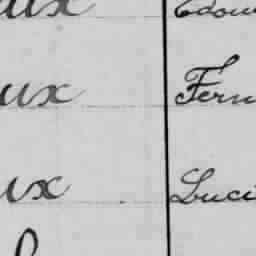 ux Edou
ux Fern
ux Luci